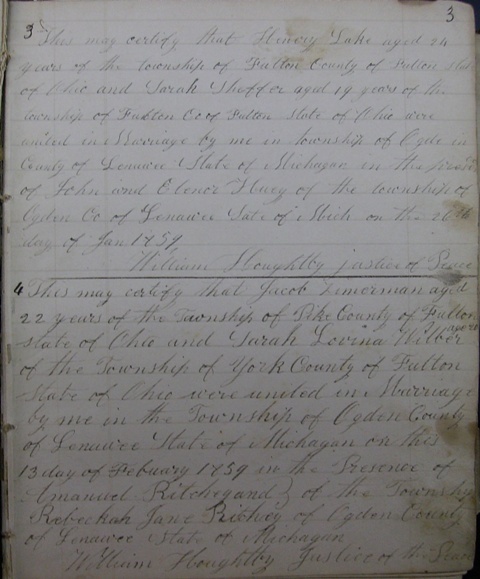 3
3 This may certify that Henery Lake aged 24
years of the township of Fulton County of Fulton state
of Ohio and Sarah Shoffer aged 19 years of the
township of Fulton Co of Fulton State of Ohio were
united in Marriage by me in township of Ogde in
County of Lenawee State of Michagan in the
of John and Elenor Huey of the township of
Ogden Co of Lenawee Sate of Mich on the 26th
day of Jan 1859
William Houghlby justice of Peace
4 This may certify that Jacob Zimerman aged
22 years of the Township of Pike County of Fulton
State of Ohio and Sarah Lovina Wilber
of the Township of York County of Fulton
State of Ohio were united in Marriage
by me in the Township of Ogden County
of Lenawee State of Michagan on this
13 day of Febuary 1859 in the Presence of
Emanuel } of the Township
Rebeckah Jane of Ogden County
of Lenawee State of Michagan
William Houghlby Justice of the Peace